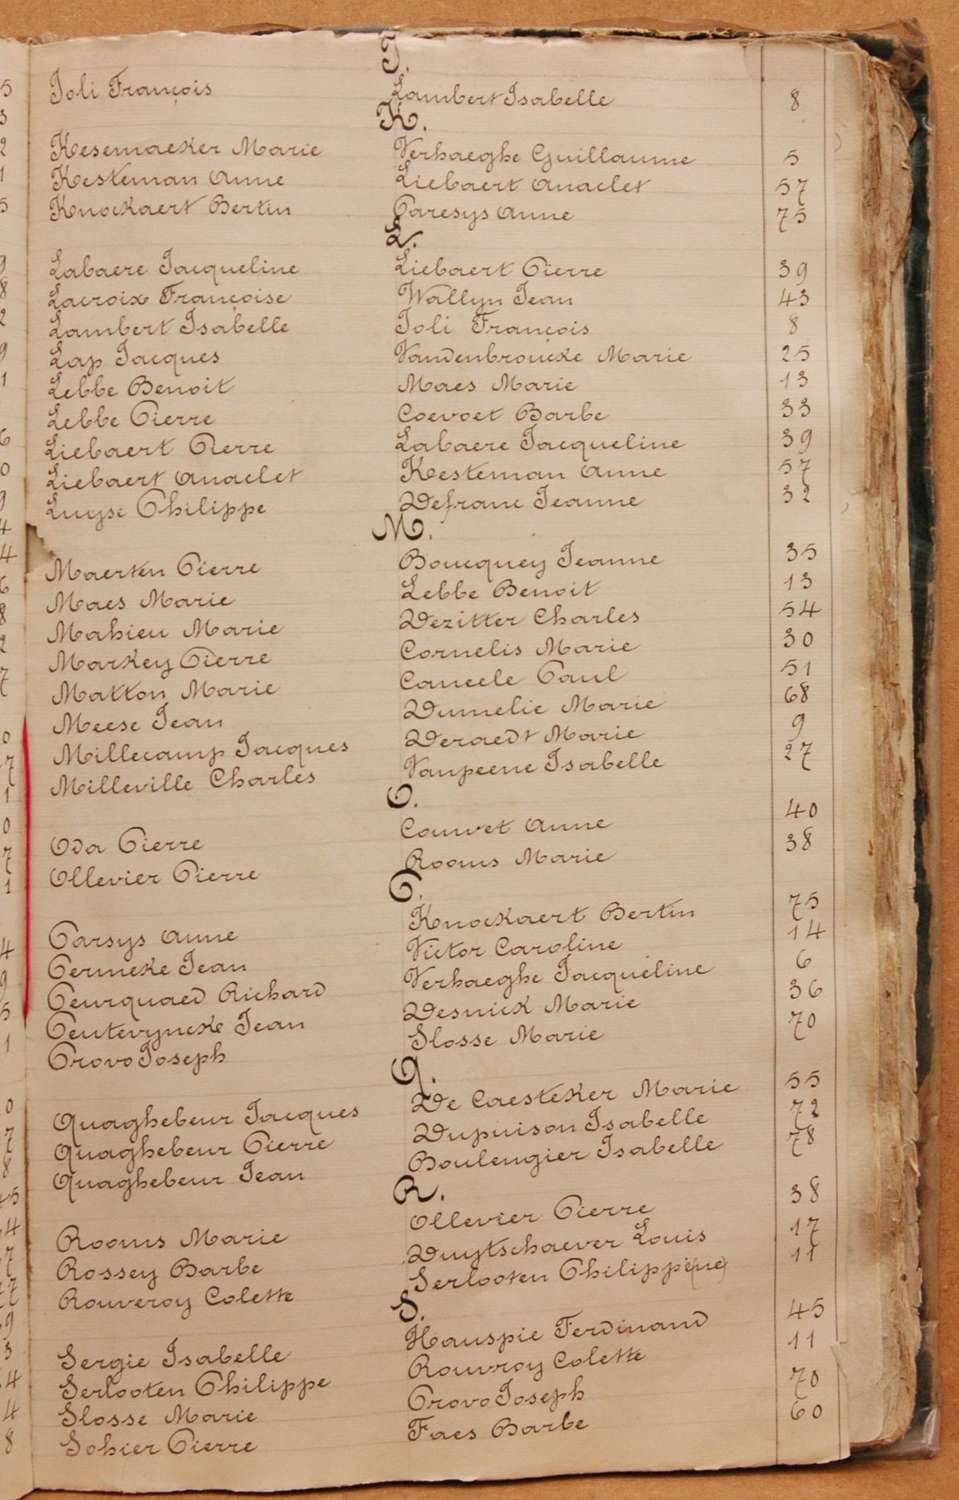 J.
Joli François Lambert Isabelle 8
K.
Kesemaeker Marie Verhaeghe Guillaume 5
Kesteman Anne Liebaert Anaclet 57
Knockaert Bertin Paresys Anne 75
L.
Labaere Jacqueline Liebaert Pierre 39
Lacroix Françoise Wallyn Jean 43
Lambert Isabelle Joli François 8
Lap Jacques Vandenbroucke Marie 25
Lebbe Benoit Maes Marie 13
Lebbe Pierre Coevoet Barbe 33
Liebaert Pierre Labaere Jacqueline 39
Liebaert Anaclet Kesteman Anne 57
Luyse Philippe Defranc Jeanne 32
M.
Maerten Pierre Boucquey Jeanne 35
Maes Marie Lebbe Benoit 13
Mahieu Marie Dezitter Charles 54
Markey Pierre Cornelis Marie 30
Matton Marie Caneele Paul 51
Meese Jean Dumelie Marie 68
Millecamp Jacques Deraedt Marie 9
Milleville Charles Vanpeene Isabelle 27
O.
Oda Pierre Couvet Anne 40
Ollevier Pierre Rooms Marie 38
P.
Parsys Anne Knockaert Bertin 75
Permeke Jean Victor Caroline 14
Peurquaed Richard Verhaeghe Jacqueline 6
Peutevynck Jean Desnick Marie 36
Provo Joseph Slosse Marie 70
Q.
Quaghebeur Jacques De Caesteker Marie 55
Quaghebeur Pierre Dupuison Isabelle 72
Quaghebeur Jean Boulengier Isabelle 78
R.
Rooms Marie Ollevier Pierre 38
Rossey Barbe Duytschaever Louis 17
Rouveroy Colette Serlooten Philipp(ine) 11
S.
Sergie Isabelle Hauspie Ferdinand 45
Serlooten Philippe Rouvroy Colette 11
Slosse Marie Provo Joseph 70
Sohier Pierre Faes Barbe 60